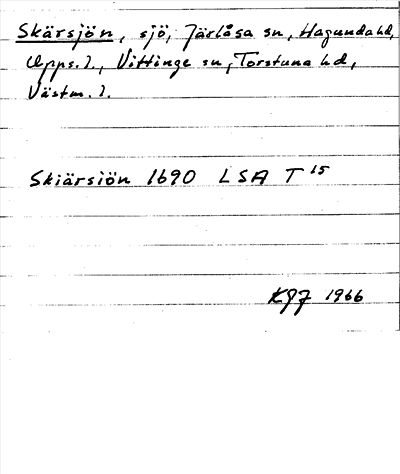 Skärsjön, sjö, Järlåsa sn, Hagunda hd,
Upps. l., Vittinge sn, Torstuna hd,
Västm. l.
Skiärsiön 1690 LSA T 15
KGJ 1966